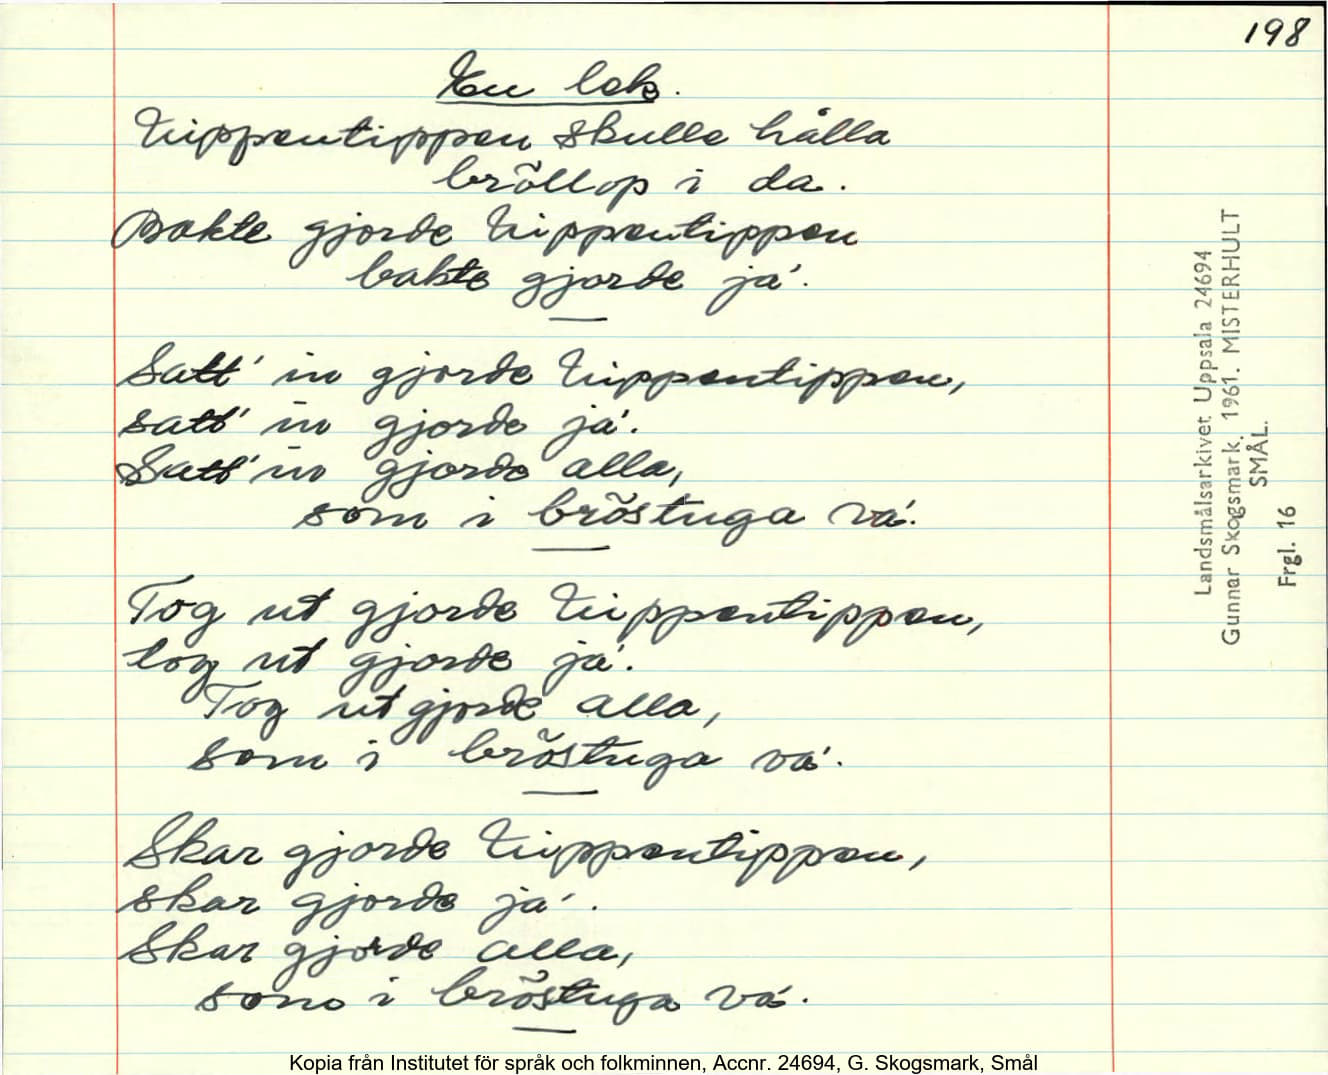 198
En lek.
Nippentippen skulle hålla
bröllop i da.
Bakte gjorde Nippentippen
bakte gjorde ja'.
Satt' in gjorde Nippentippen,
satt' in gjorde ja'.
Satt' in gjorde alla,
som i bröstuga va'.
Tog ut gjorde Nippentippen,
tog ut gjorde ja'.
Tog ut gjorde alla,
som i bröstuga va'.
Skar gjorde Nippentippen,
skar gjorde ja'.
Skar gjorde alla,
som i bröstuga va'.
Landsmålsarkivet Uppsala 24694
Gunnar Skogsmark. 1961. MISTERHULT
SMÅL.
Frgl. 16
Kopia från Institutet för språk och folkminnen, Accnr. 24694, G. Skogsmark, Smål